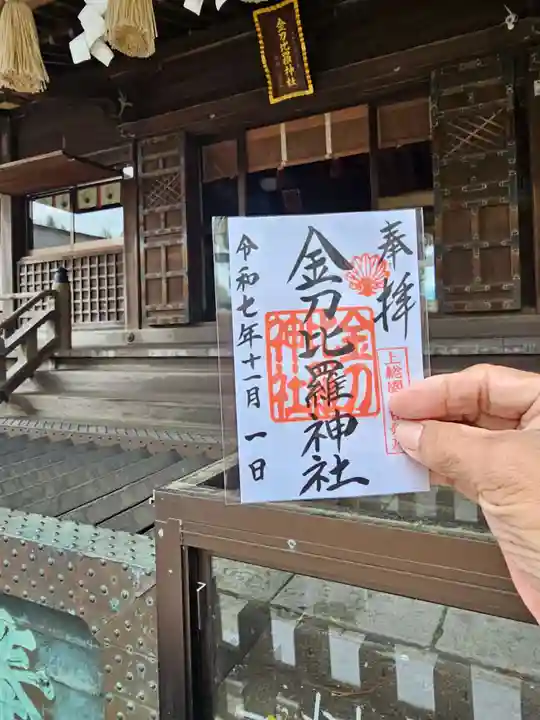 金刀比羅神社
奉拝
金刀比羅神社
金刀比羅神社
上総國
令和七年十一月一日